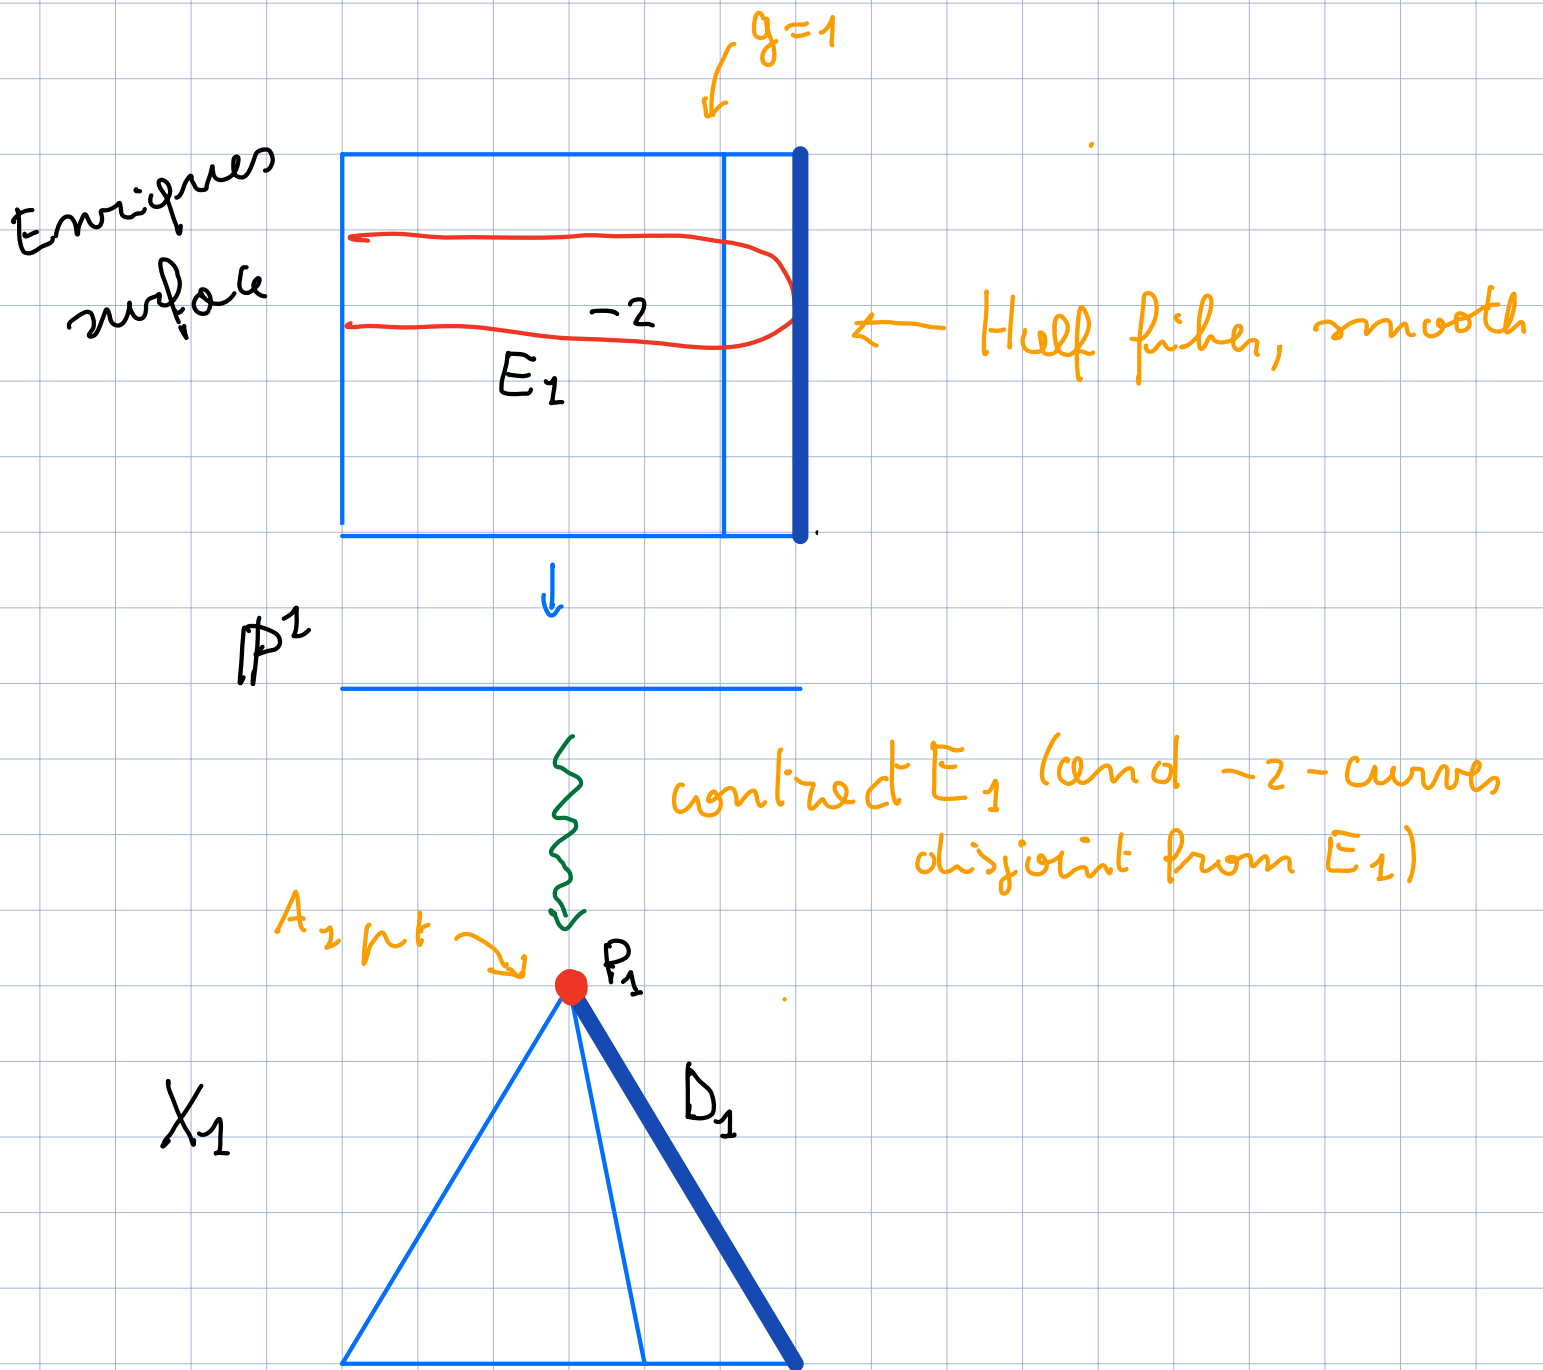 g=1
Enriques
surface
-2
E₁
← Half fiber, smooth
ℙ¹
contract E₁ (and -2-curves
disjoint from E₁)
A₁ pt
P₁
X₁
D₁